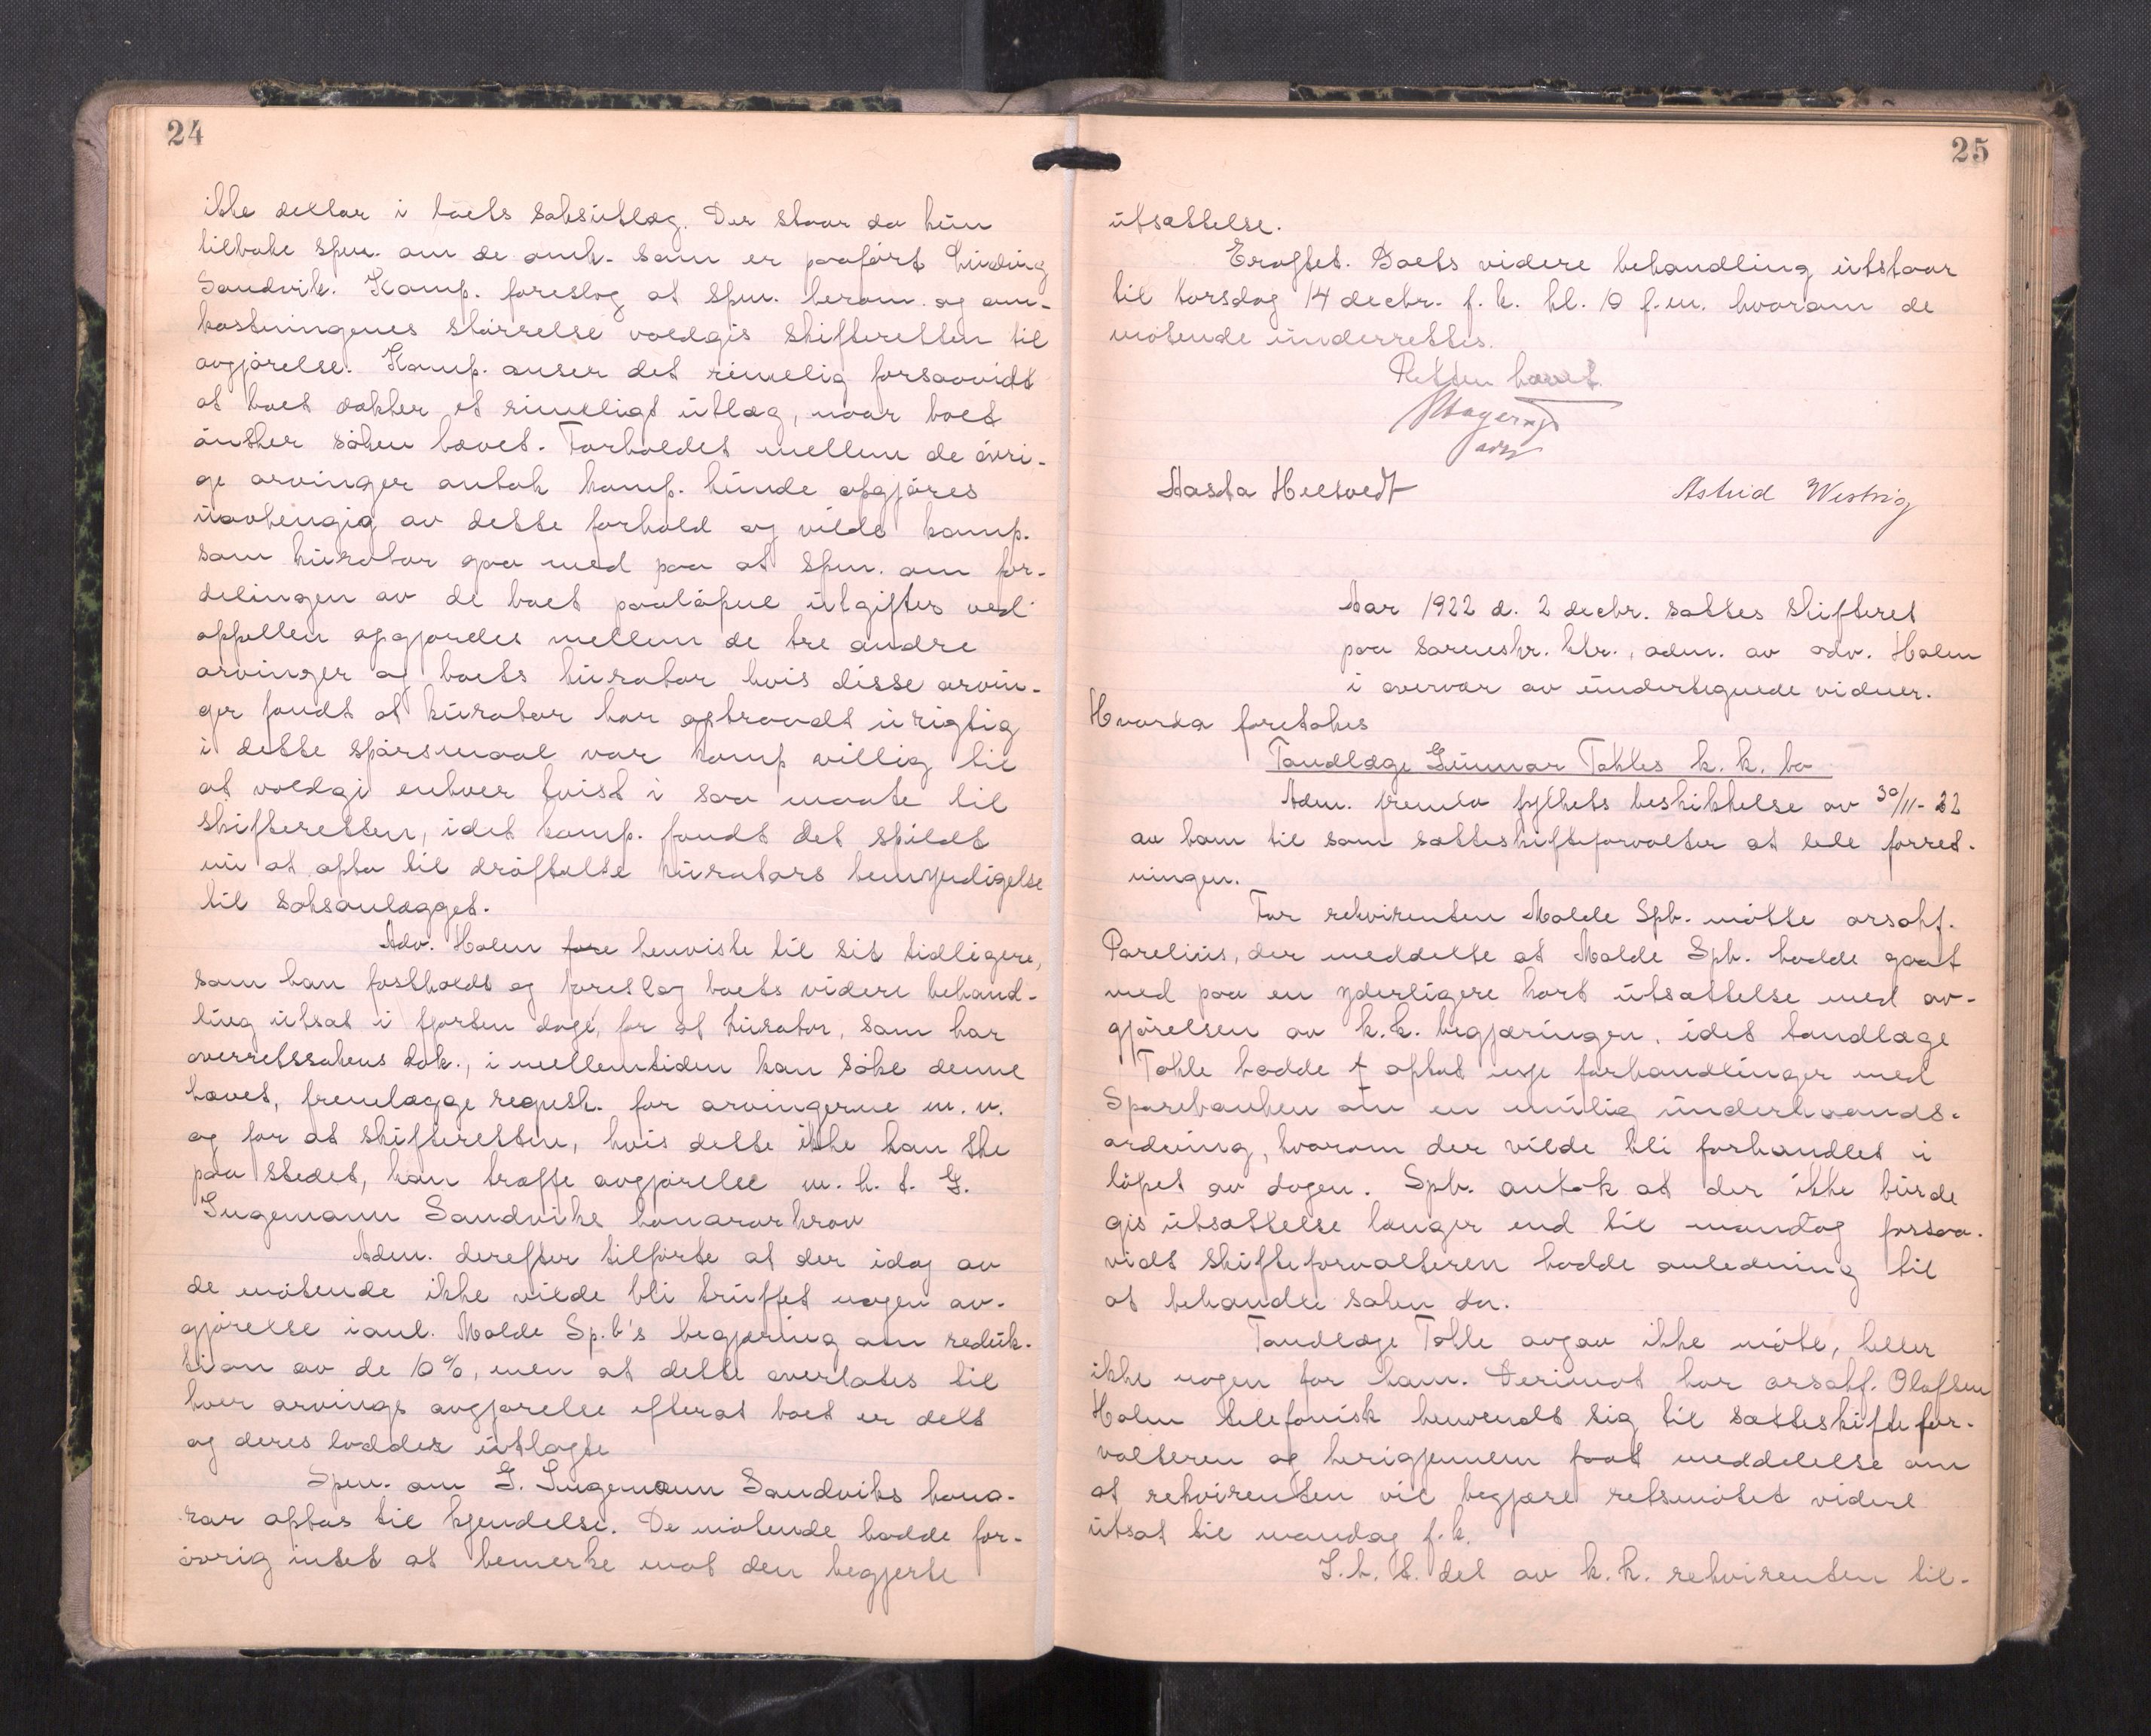 24
ikke deltar i boets saksutlæg. Der staar da kun
tilbake spm. om de omk. som er paaført Hinding
Sandvik. Komp. foreslog at spm. herom og om-
kostningenes størrelse voldgis skifteretten til
avgjørelse. Komp. anser det rimelig forsaavidt
at boet dækker et rimeligt utlæg, naar boet
ønsker saken hævet. Forholdet mellem de øvri-
ge arvinger antok komp. kunde opgjøres
uavhengig av dette forhold og vilde komp.
som kurator gaa med paa at spm. om for-
delingen av de boet paaløpne utgifter ved
appellen opgjordes mellem de tre andre
arvinger og boets kurator hvis disse arvin-
ger fandt at kurator har optraadt urigtig
i dette spørsmaal var komp villig til
at voldgi enhver tvist i saa maate til
skifteretten, idet komp. fandt det spildt
nu at opta til drøftelse kurators bemyndigelse
til saksanlægget.
Adv. Holm fore henviste til sit tidligere,
som han fastholdt og foreslog boets videre behand-
ling utsat i fjorten dage, for at kurator, som har
overretssakens dok., i mellemtiden kan søke denne
hævet, fremlægge regnsk. for arvingerne m. v.
og for at skifteretten, hvis dette ikke kan ske
paa stedet, kan træffe avgjørelse m. h. t. G.
Ingemann Sandviks honorarkrav
Adm. derefter tilførte at der idag av
de møtende ikke vilde bli truffet nogen av-
gjørelse i anl. Molde Sp.b's begjæring om reduk-
tion av de 10%, men at dette overlates til
hver arvings avgjørelse efterat boet er delt
og deres lodder utlagte
Spm. om G. Ingemann Sandviks hono-
rar optas til kjendelse. De møtende hadde for-
øvrig intet at bemerke mot den begjærte
25
utsættelse.
Eragtet. Boets videre behandling utstaar
til torsdag 14 decbr. f. k. kl. 10 f.m. hvorom de
møtende underrettes.
Retten hævet.
Aasta Heltvedt Astrid Westvig
Aar 1922 d. 2 decbr. sattes skifteret
paa sorenskr. ktr., adm. av adv. Holm
i overvær av undertegnede vidner.
Hvorda foretokes
Tandlæge Gunnar Tokles k. k. bo
Adm. fremla fylkets beskikkelse av 30/11-22
av ham til som sætteskifteforvalter at lede forret-
ningen.
For rekvirenten Molde Spb. møtte orsakf.
Parelius, der meddelte at Molde Spb. hadde gaat
med paa en yderligere kort utsættelse med av-
gjørelsen av k.k. begjæringen, idet tandlæge
Tokle hadde t optat nye forhandlinger med
Sparebanken om en mulig underhaands-
ordning, hvorom der vilde bli forhandlet i
løpet av dagen. Spb. antok at der ikke burde
gis utsættelse længer end til mandag forsaa-
vidt skifteforvalteren hadde anledning til
at behandle saken da.
Tandlæge Tokle avgav ikke møte, heller
ikke nogen for ham. Derimot har orsakf. Olafsen
Holm telefonisk henvendt sig til sætteskiftefor-
valteren og herigjennem faat meddelelse om
at rekvirenten vil begjære retsmøtet videre
utsat til mandag f.k.
I. h. t. del av k.k. rekvirenten til-